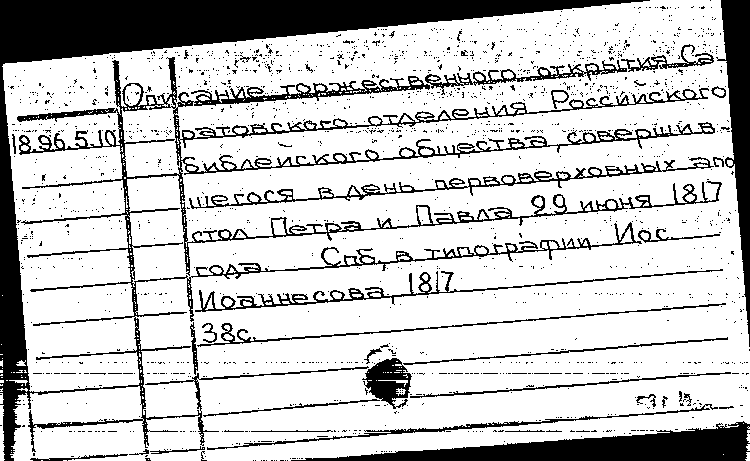 Описание торжественного открытия Са-
18.96.5.10 ратовского отделения Российского
Библейского общества, совершив-
шегося в день первоверховных апо
стол Петра и Павла, 29 июня 1817
года. Спб, в типографии Иос.
Иоаннесова, 1817
38с.